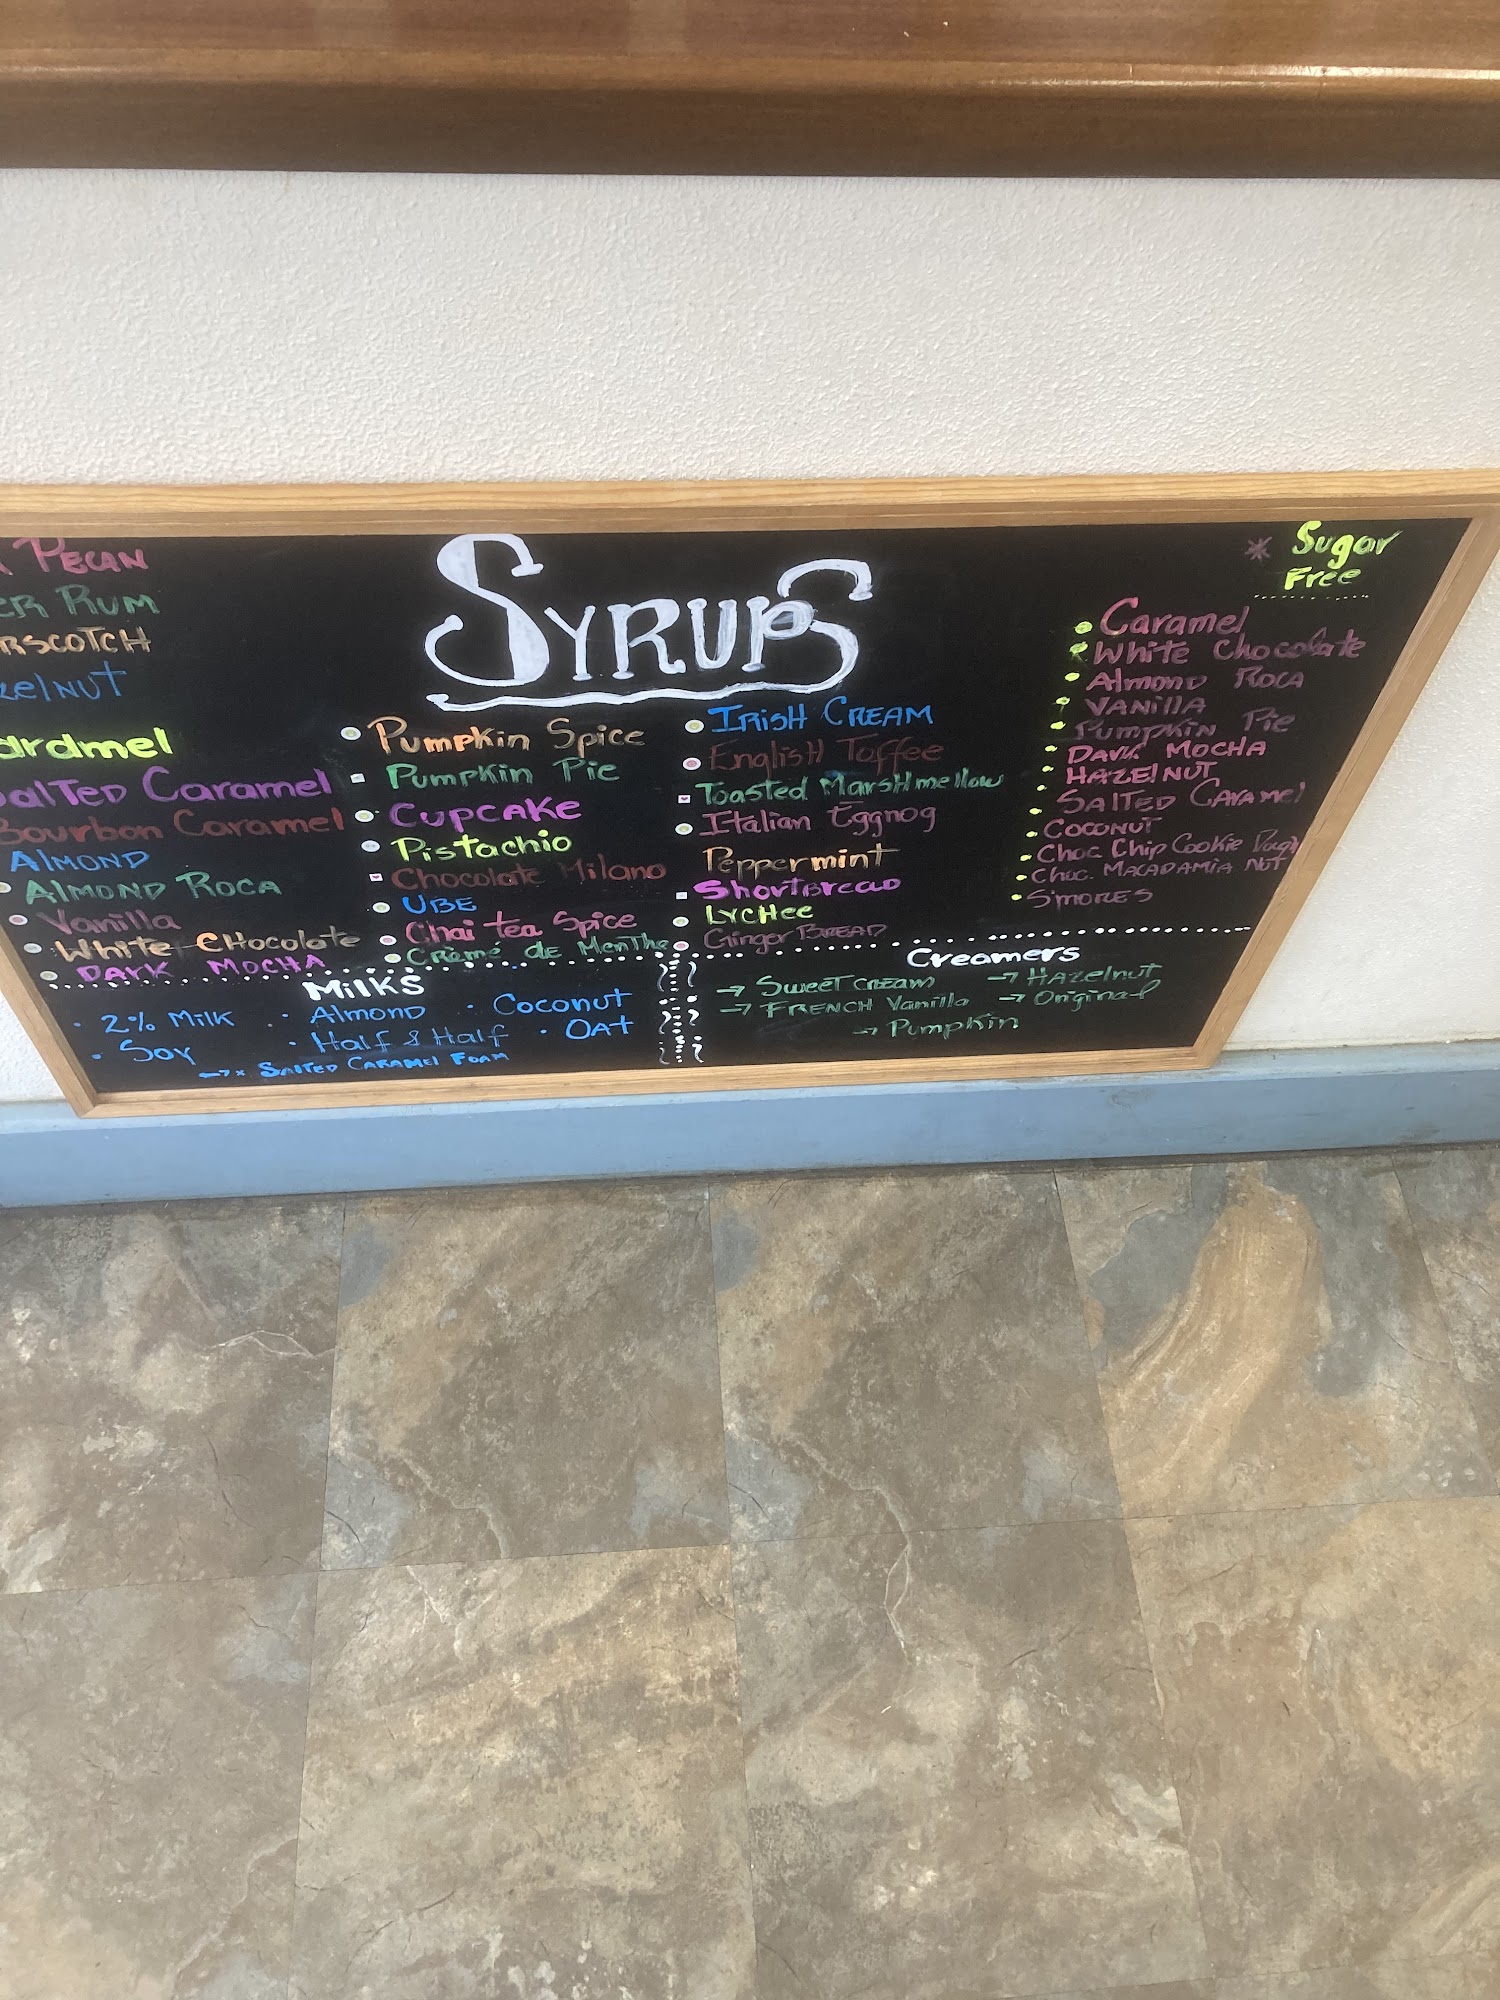 PECAN
RUM
Caramel
Salted Caramel
Bourbon Caramel
Almond
Almond Roca
Vanilla
White Chocolate
DARK MOCHA
SYRUPS
Pumpkin Spice
Pumpkin Pie
CUPCAKE
Pistachio
Chocolate Milano
UBE
Chai tea Spice
Crémé de Menthe
IRISH CREAM
English Toffee
Toasted Marshmellow
Italian Eggnog
Peppermint
Shortbread
LYCHee
Ginger BREAD
* Sugar
Free
Caramel
White Chocolate
Almond Roca
VANILLA
Pumpkin Pie
DARK MOCHA
HAZELNUT
SALTED CARAMEL
COCONUT
Choc Chip Cookie
Choc. MACADAMIA NUT
S'MORES
Milks
2% Milk
Almond
Coconut
Soy
Half & Half
OAT
→ * SALTED CARAMEL FOAM
Creamers
→ Sweet cream
→ Hazelnut
→ FRENCH Vanilla
→ Original
→ Pumpkin